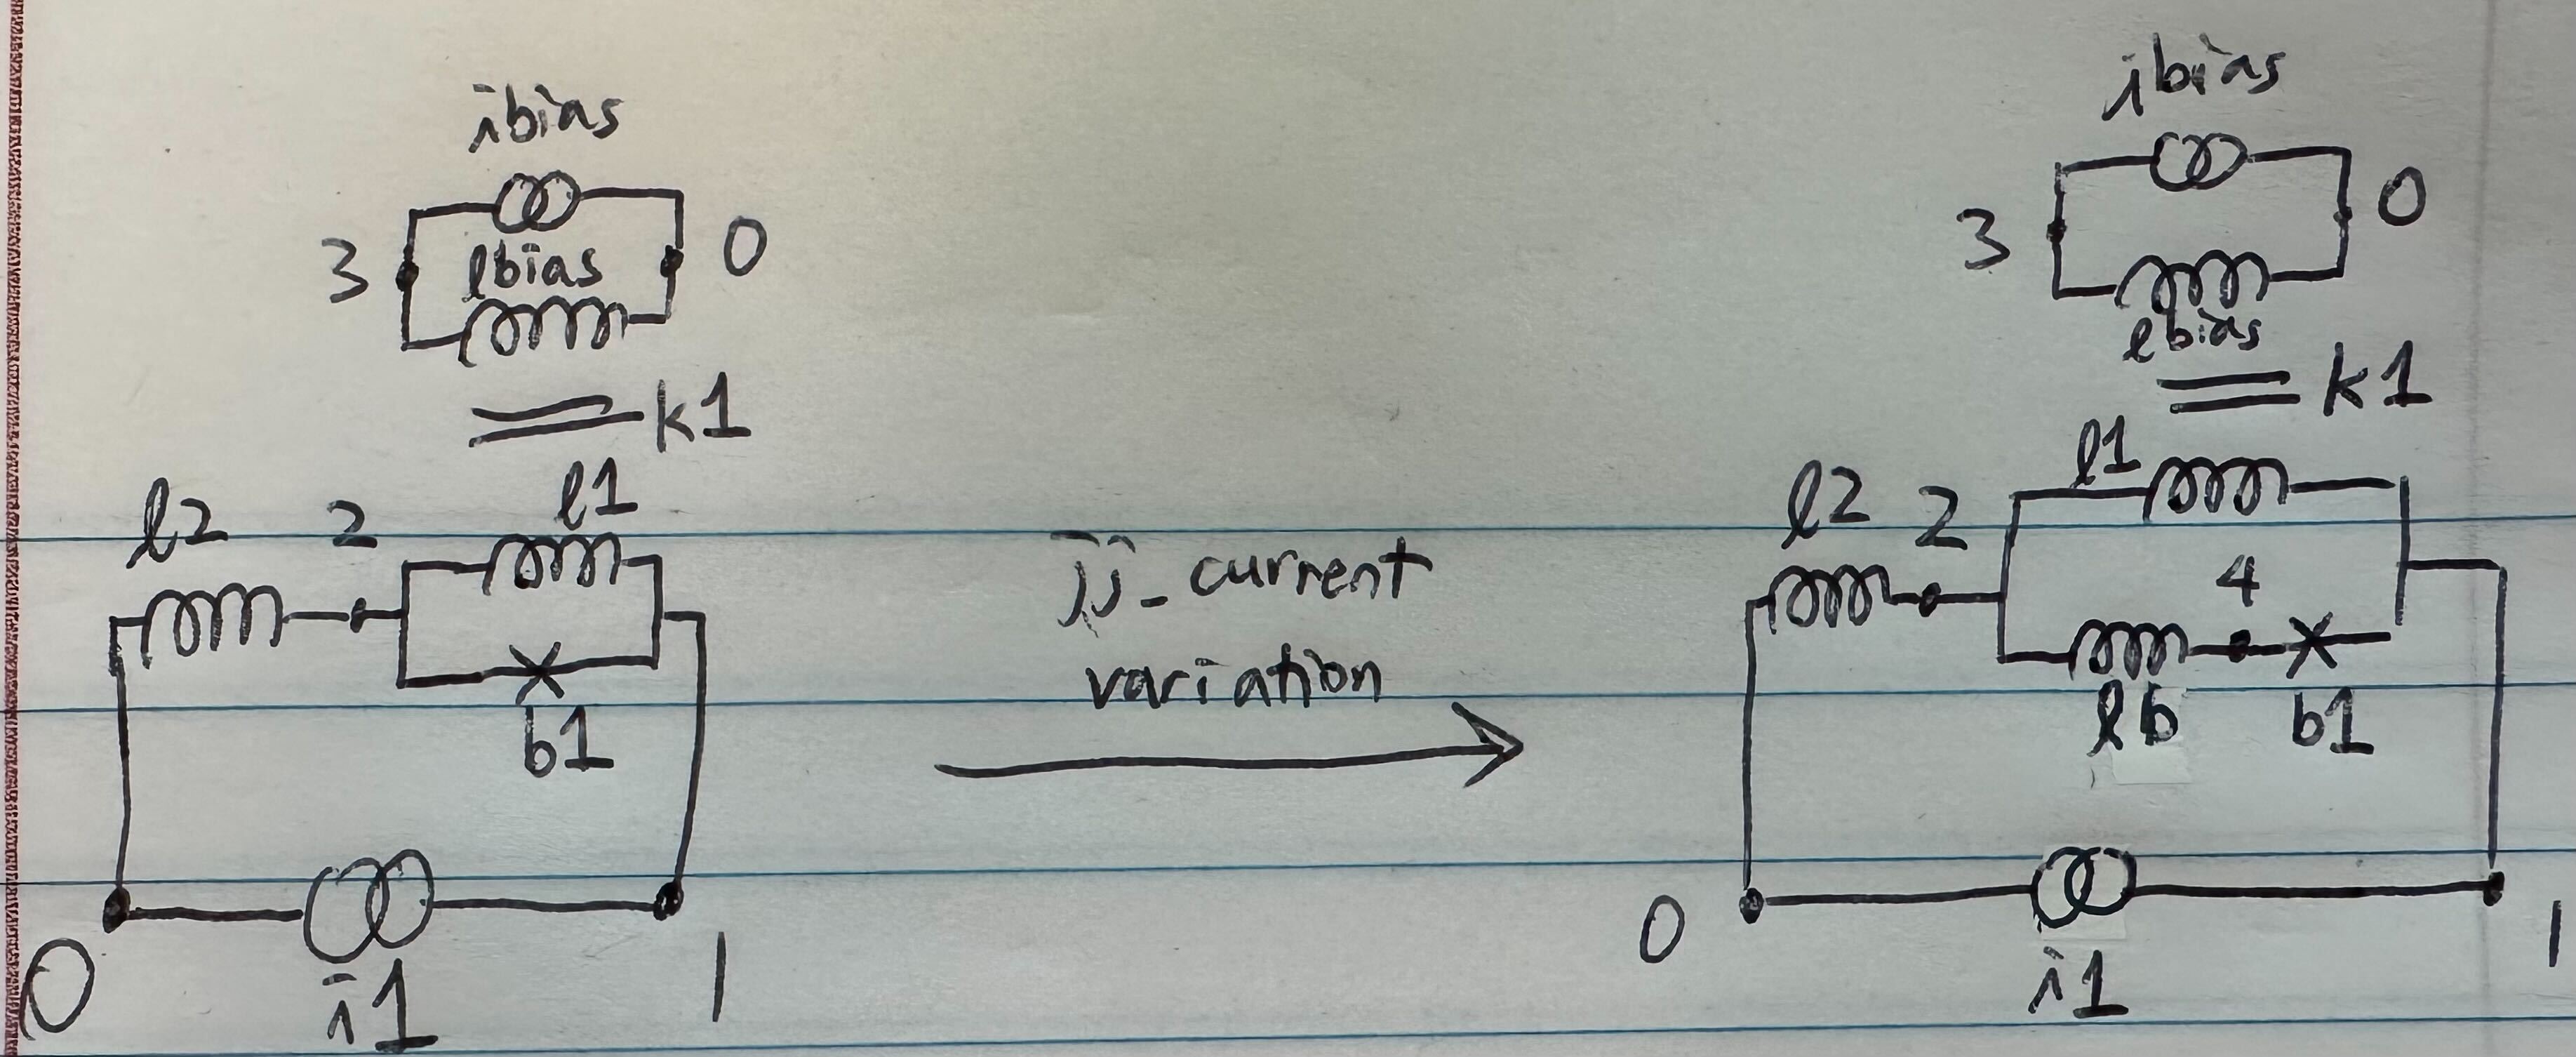 ibias
3
lbias
0
k1
l1
l2
2
b1
0
i1
1
jj-current
variation
ibias
3
0
lbias
k1
l1
l2
2
4
lb
b1
0
i1
1